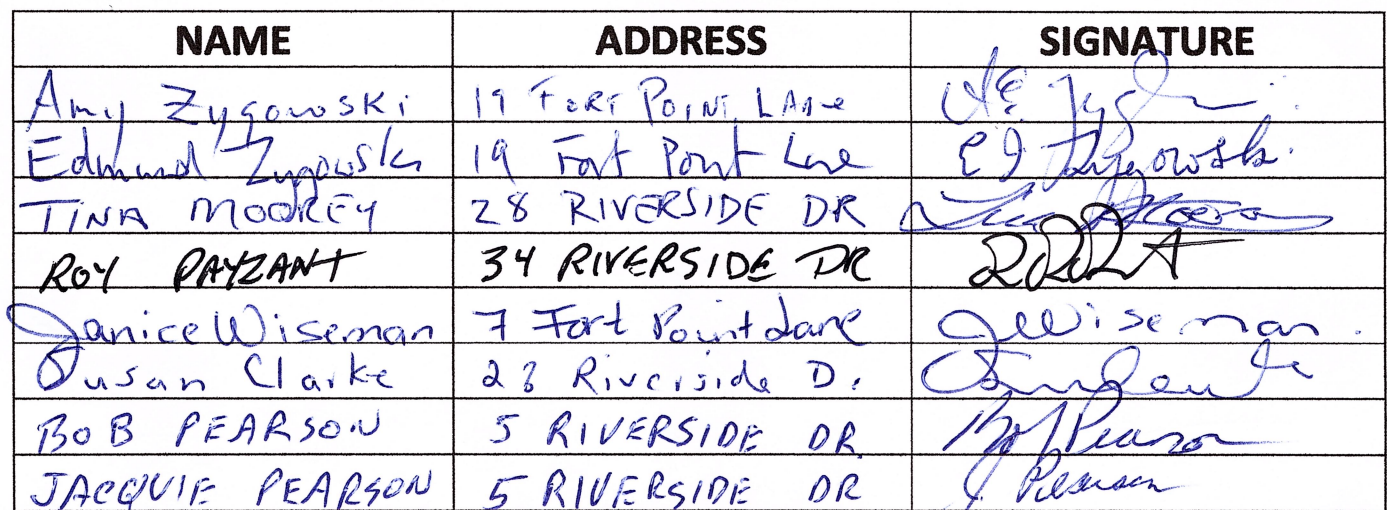 NAME ADDRESS SIGNATURE
Amy Zygowski 19 FORT POINT LANE
Edmund Zygowski 19 Fort Point Lane E J Zygowski
TINA MOOREY 28 RIVERSIDE DR
ROY PAYZANT 34 RIVERSIDE DR
Janice Wiseman 7 Fort Point Lane J Wiseman
Susan Clarke 23 Riverside D.
BOB PEARSON 5 RIVERSIDE DR Bob Pearson
JACQUIE PEARSON 5 RIVERSIDE DR J Pearson